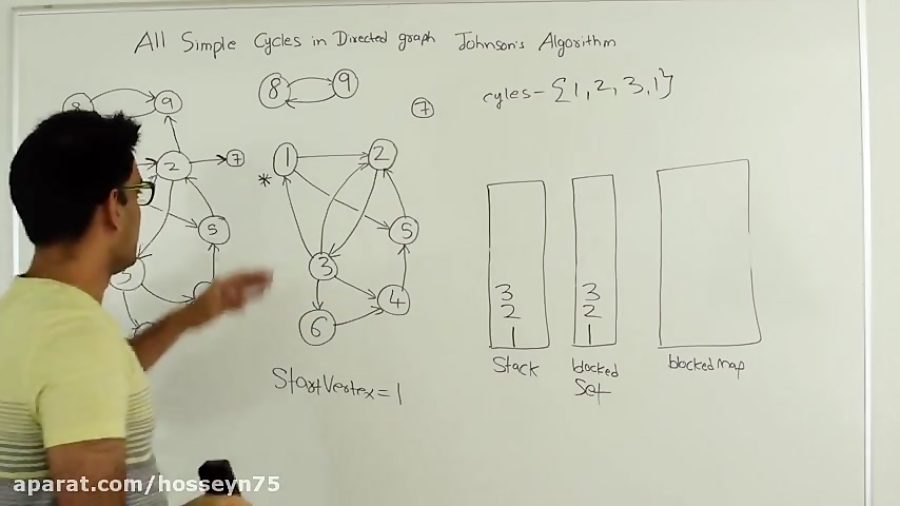 All Simple Cycles in Directed graph Johnson's Algorithm
8 9
8 9
cycles-{1, 2, 3, 1}
7
2 7
1 2
*
5
5
3
3
4
6
3 3
2 2
1 1
Stack
blocked
Set
blocked map
StartVertex=1
aparat.com/hosseyn75